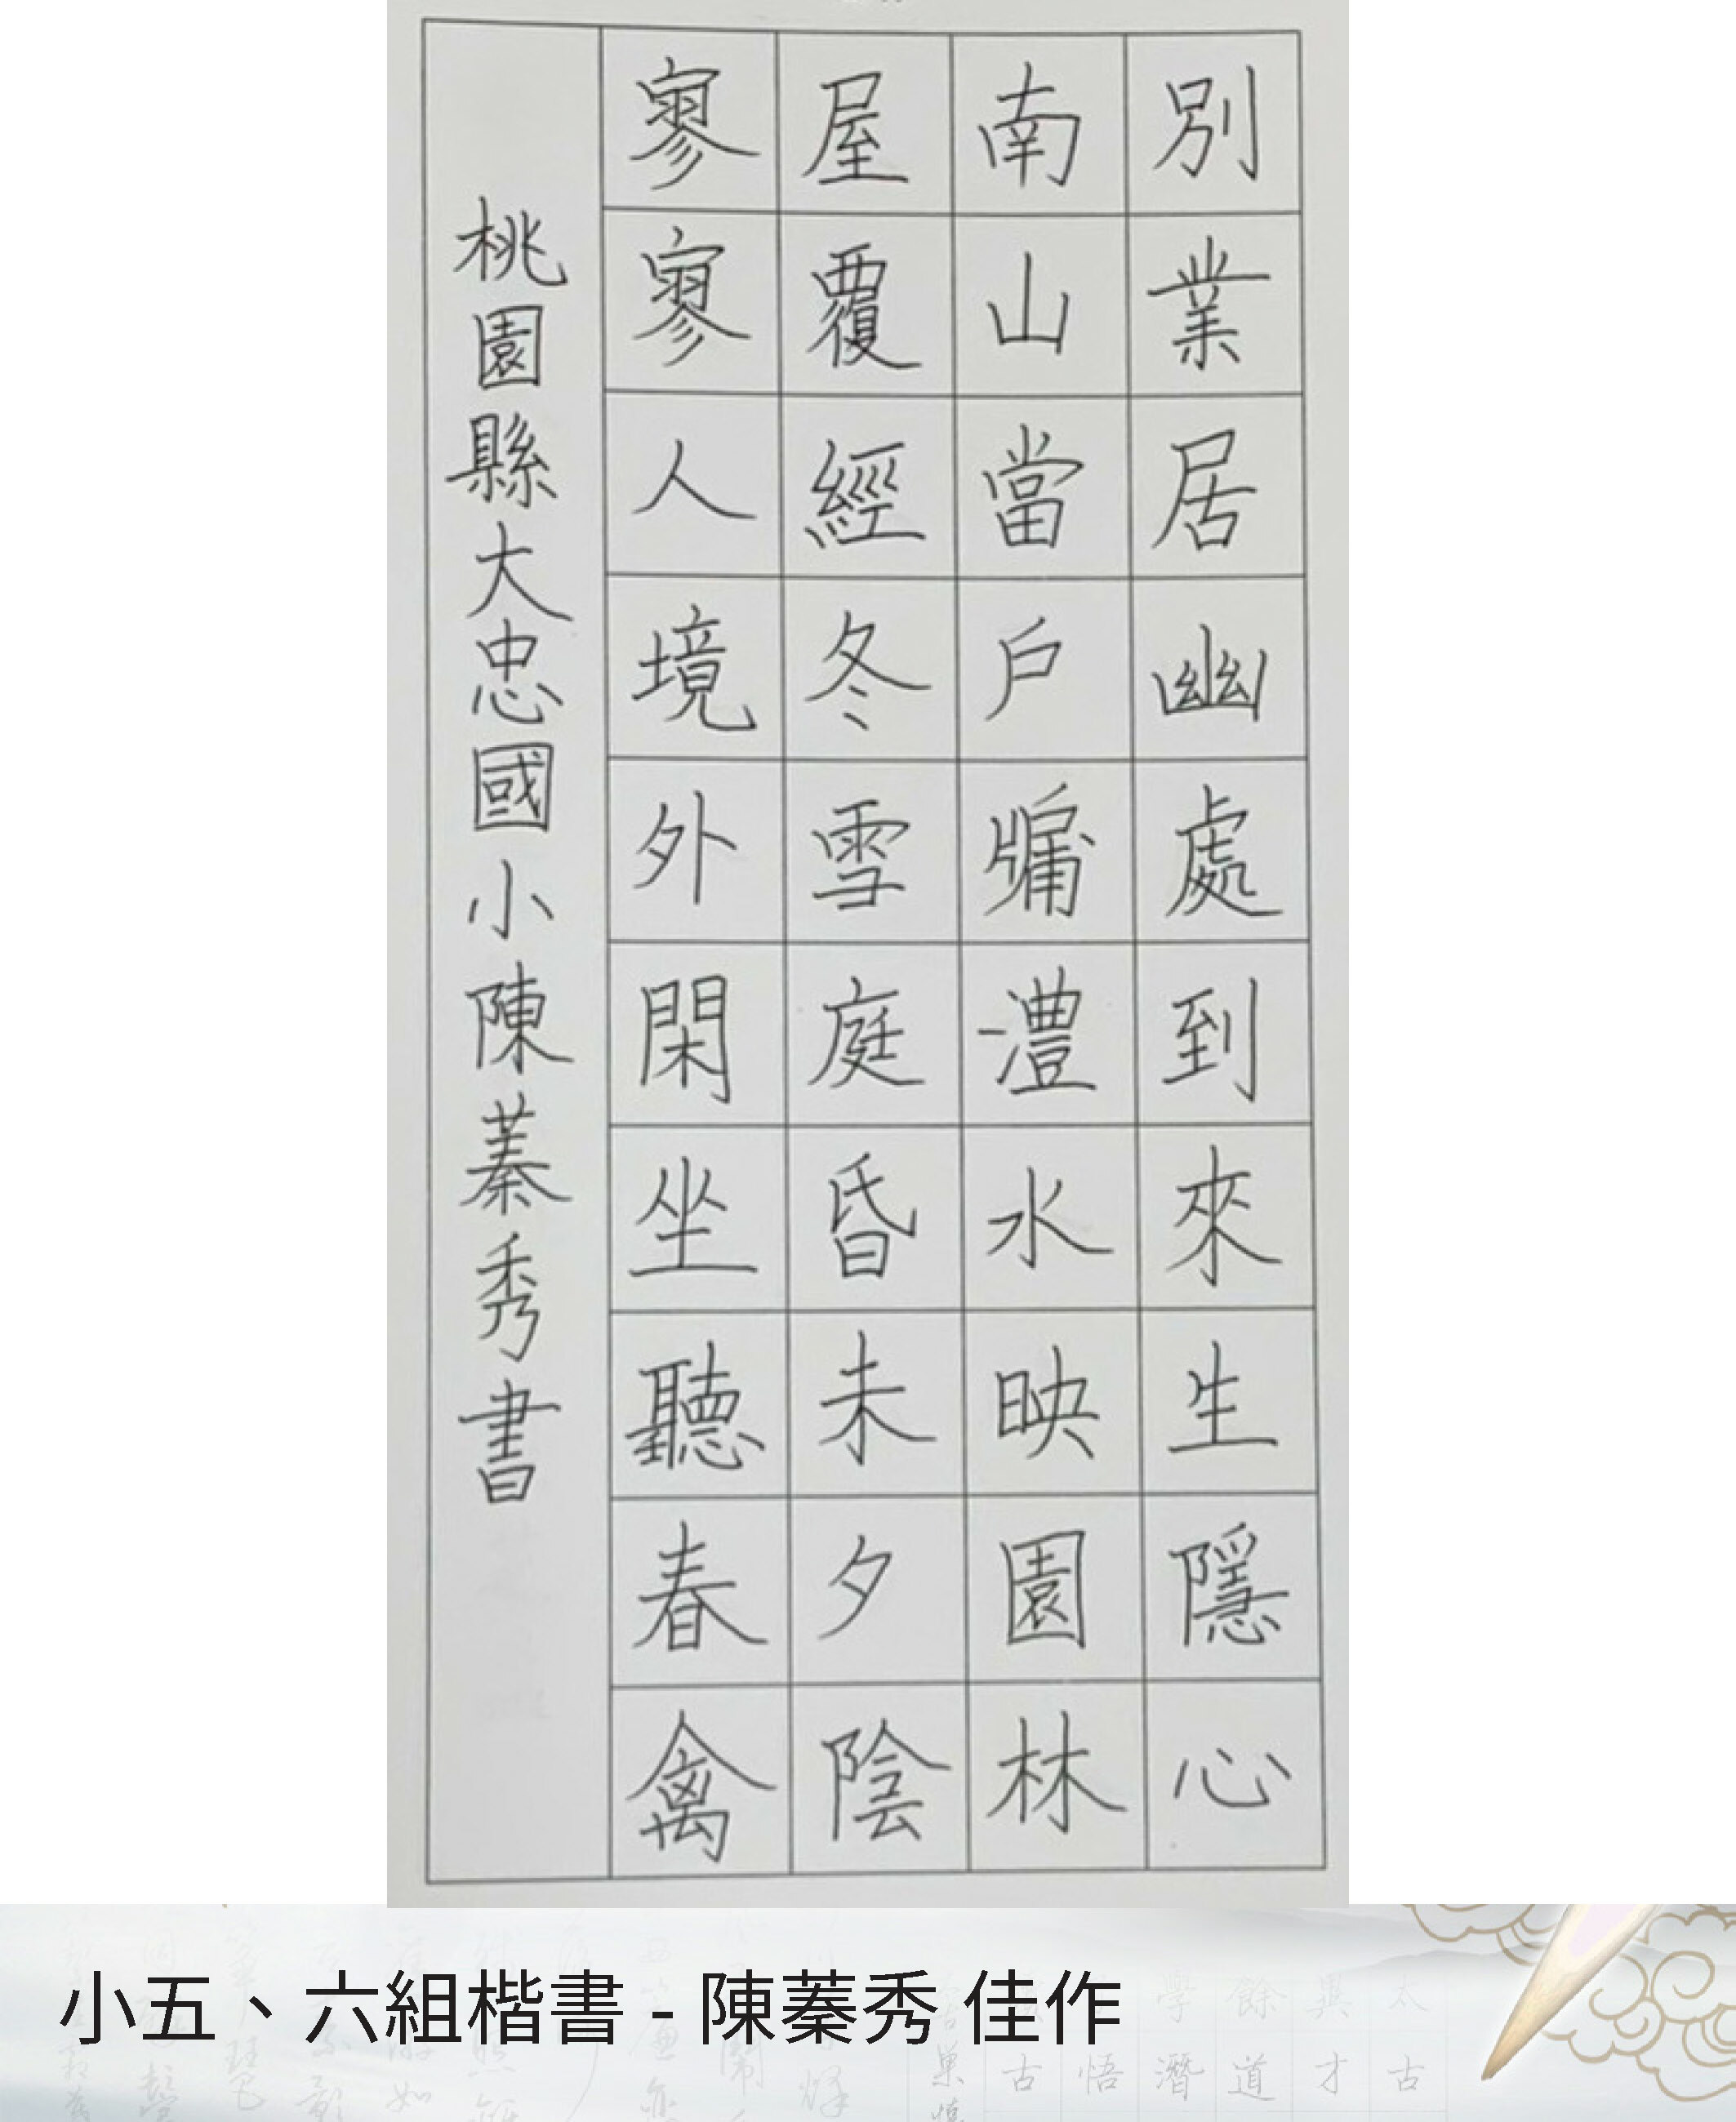 別業居幽處到來生隱心
南山當戶牖灃水映園林
屋覆經冬雪庭昏未夕陰
寥寥人境外閑坐聽春禽
桃園縣大忠國小陳蓁秀書
小五、六組楷書 - 陳蓁秀 佳作
學餘與太
古悟潛道才古